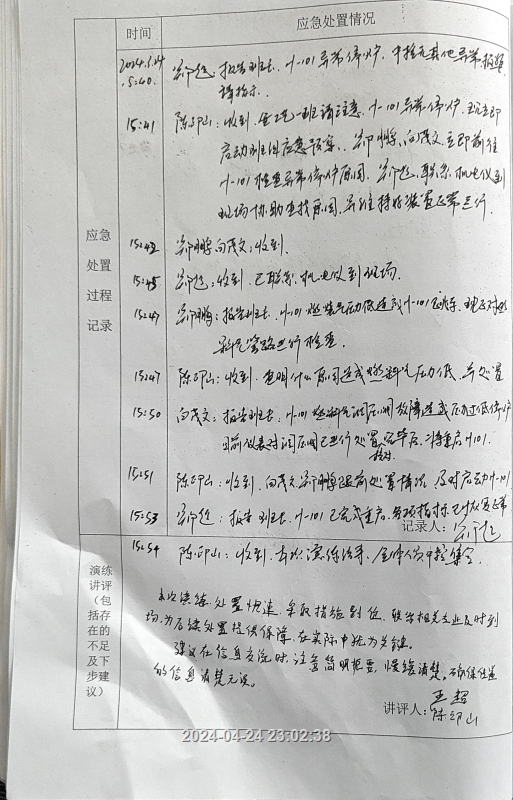 时间
应急处置情况
2024.4.24
15:40. 郭超:报告班长,H-101异常停炉,中控无其他异常,报警
请指示.
15:41 陈印山:收到,全班请注意,H-101异常停炉,现立即
启动班组应急预案,郭鹏、向茂文立即前往
H-101检查异常停炉原因,郭超,联系机电仪到
现场协助查找原因,并维持好装置正常运行.
应急
处置
过程
记录
15:42 郭鹏、向茂文:收到.
15:45 郭超:收到,已联系机电仪到现场.
15:47 郭鹏:报告班长,H-101燃料气压力低造成H-101联锁,现正对燃
料气管路进行检查.
15:47 陈印山:收到,查明什么原因造成燃料气压力低,并处置
15:50 向茂文:报告班长,H-101燃料气调压阀故障造成压力过低停炉
目前仪表对调压阀已进行处置完毕后,待重启H101.
15:51 陈印山:收到,向茂文、郭鹏跟踪处置情况,及时启动H-101
15:53 郭超:报告班长,H-101已完成重启,各项指标已恢复正常
记录人:郭超
15:54 陈印山:收到,本次演练结束,全体人员中控集合.
演练
讲评
(包
括存
在的
不足
及下
步建
议)
本次演练处置快速,采取措施到位,联系相关专业及时到
场,为后续处置提供保障,在实际中极为关键.
建议在信息交流时,注意简明扼要,慢缓清楚,确保传递
的信息清楚无误。
讲评人:王超
陈印山
2024-04-24 23:02:38